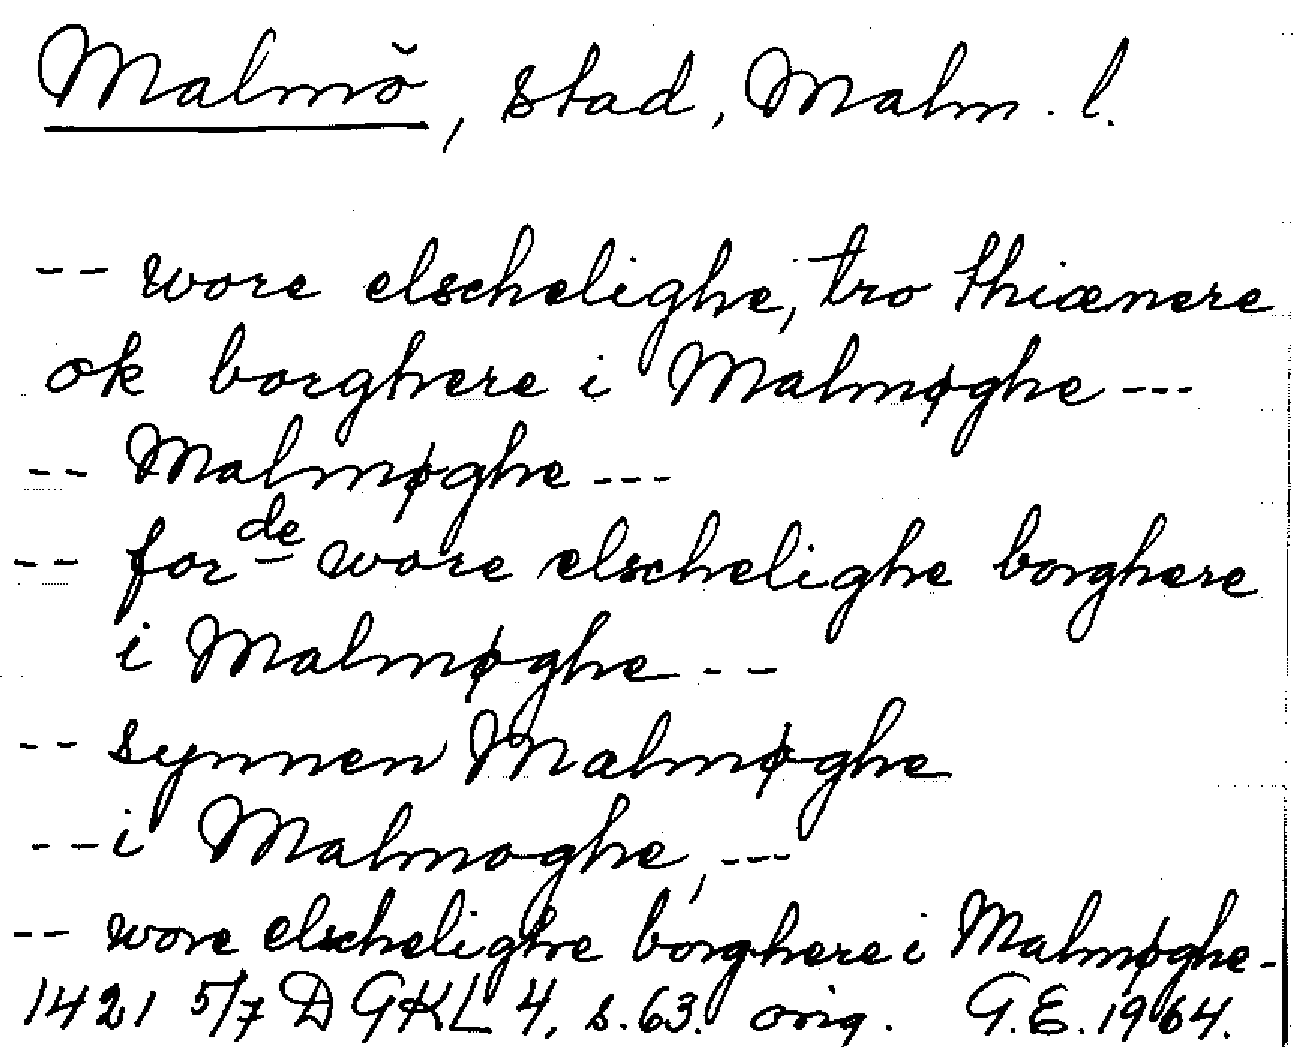 Malmö, stad, Malm. l.
-- wore elschelighe, tro thiænere
ok borghere i Malmøghe ---
-- Malmøghe ---
-- forde wore elschelighe borghere
i Malmøghe - -
-- synnen Malmøghe
-- i Malmoghe, ---
-- wore elschelighe borghere i Malmøghe -
1421 5/7 DGKL 4, s. 63. orig. G.E. 1964.